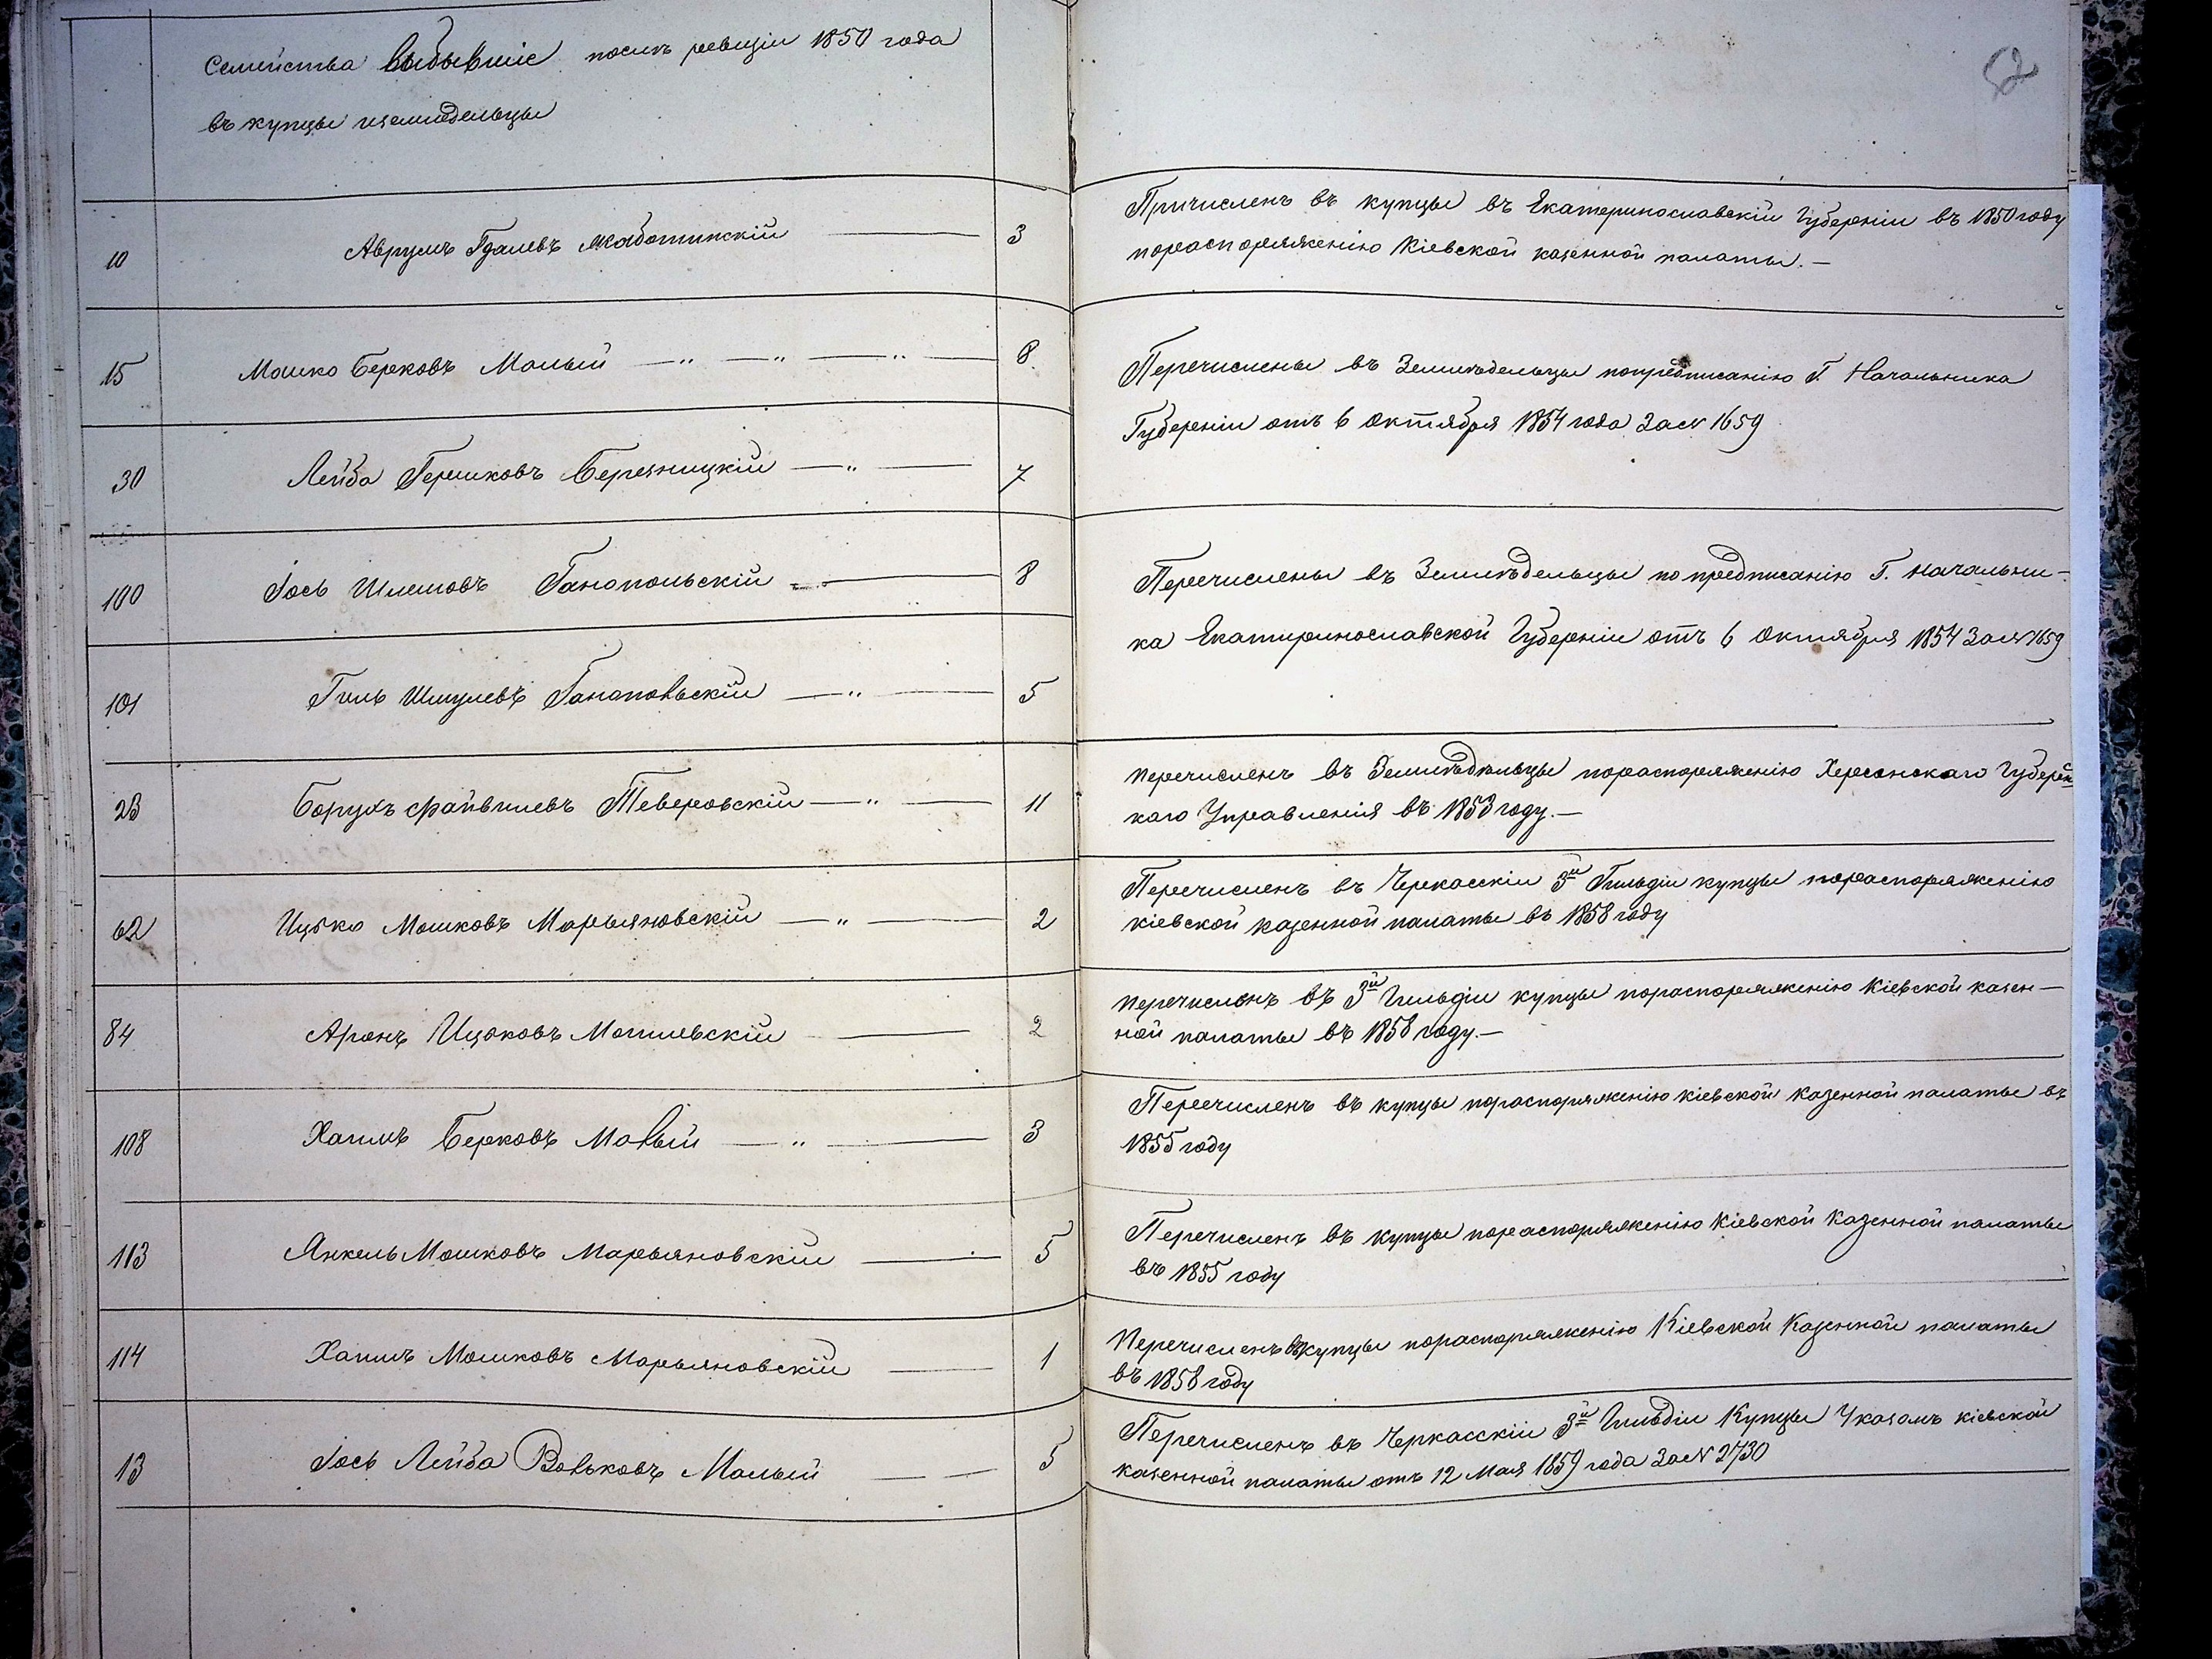 Семейства выбывшіе послѣ ревизіи 1850 года
въ купцы и земледельцы
52
10 Аврумъ Гдалевъ Жаботинскій 3
Причисленъ въ купцы въ Екатеринославскій Губерніи въ 1850 году
пораспоряженію Кіевской казенной палаты.—
15 Мошко Берковъ Малый — „ — „ — „ — 8
Перечислены въ Земледѣльцы попредписанію Г. Начальника
Губерніи отъ 6 Октября 1854 года За № 1659
30 Лейба Гершковъ Березницкій — „ — 7
100 Іось Шлемовъ Ганопольскій — 8
Перечислены въ Земледѣльцы по предписанію Г. Начальни-
ка Екатиринославской Губерніи отъ 6 Октября 1854 За № 1659
101 Гиль Шмулевъ Ганопольскій — „ — 5
23 Борухъ Файвишевъ Теверовскій — „ — 11
перечисленъ въ Земледѣльцы пораспоряженію Херсонскаго Губернс
каго Управленія въ 1853 году.—
62 Ицько Мошковъ Марьяновскій — „ — 2
Перечисленъ въ Черкасскіи 3й Гильдіи купцы пораспоряженію
кіевской казенной палаты въ 1858 году
84 Аронъ Ицковъ Могилевскій — 2
перечисленъ въ 3й Гильдіи купцы пораспоряженію Кіевской казен—
ной палаты въ 1858 году.—
108 Хаимъ Берковъ Малый — „ — 3
Перечисленъ въ купцы пораспоряженію кіевской казенной палаты въ
1855 году
113 Янкель Мошковъ Марьяновскій — 5
Перечисленъ въ купцы пораспоряженію Кіевской Казенной палаты
въ 1855 году
114 Хаимъ Мошковъ Марьяновскій — 1
Перечисленъ въ купцы пораспоряженію Кіевской Казенной палаты
въ 1858 году
13 Іось Лейба Вольковъ Малый — — 5
Перечисленъ въ Черкасскіи 3й Гильдіи Купцы Указомъ кіевской
казенной палаты отъ 12 Мая 1859 года За № 2730